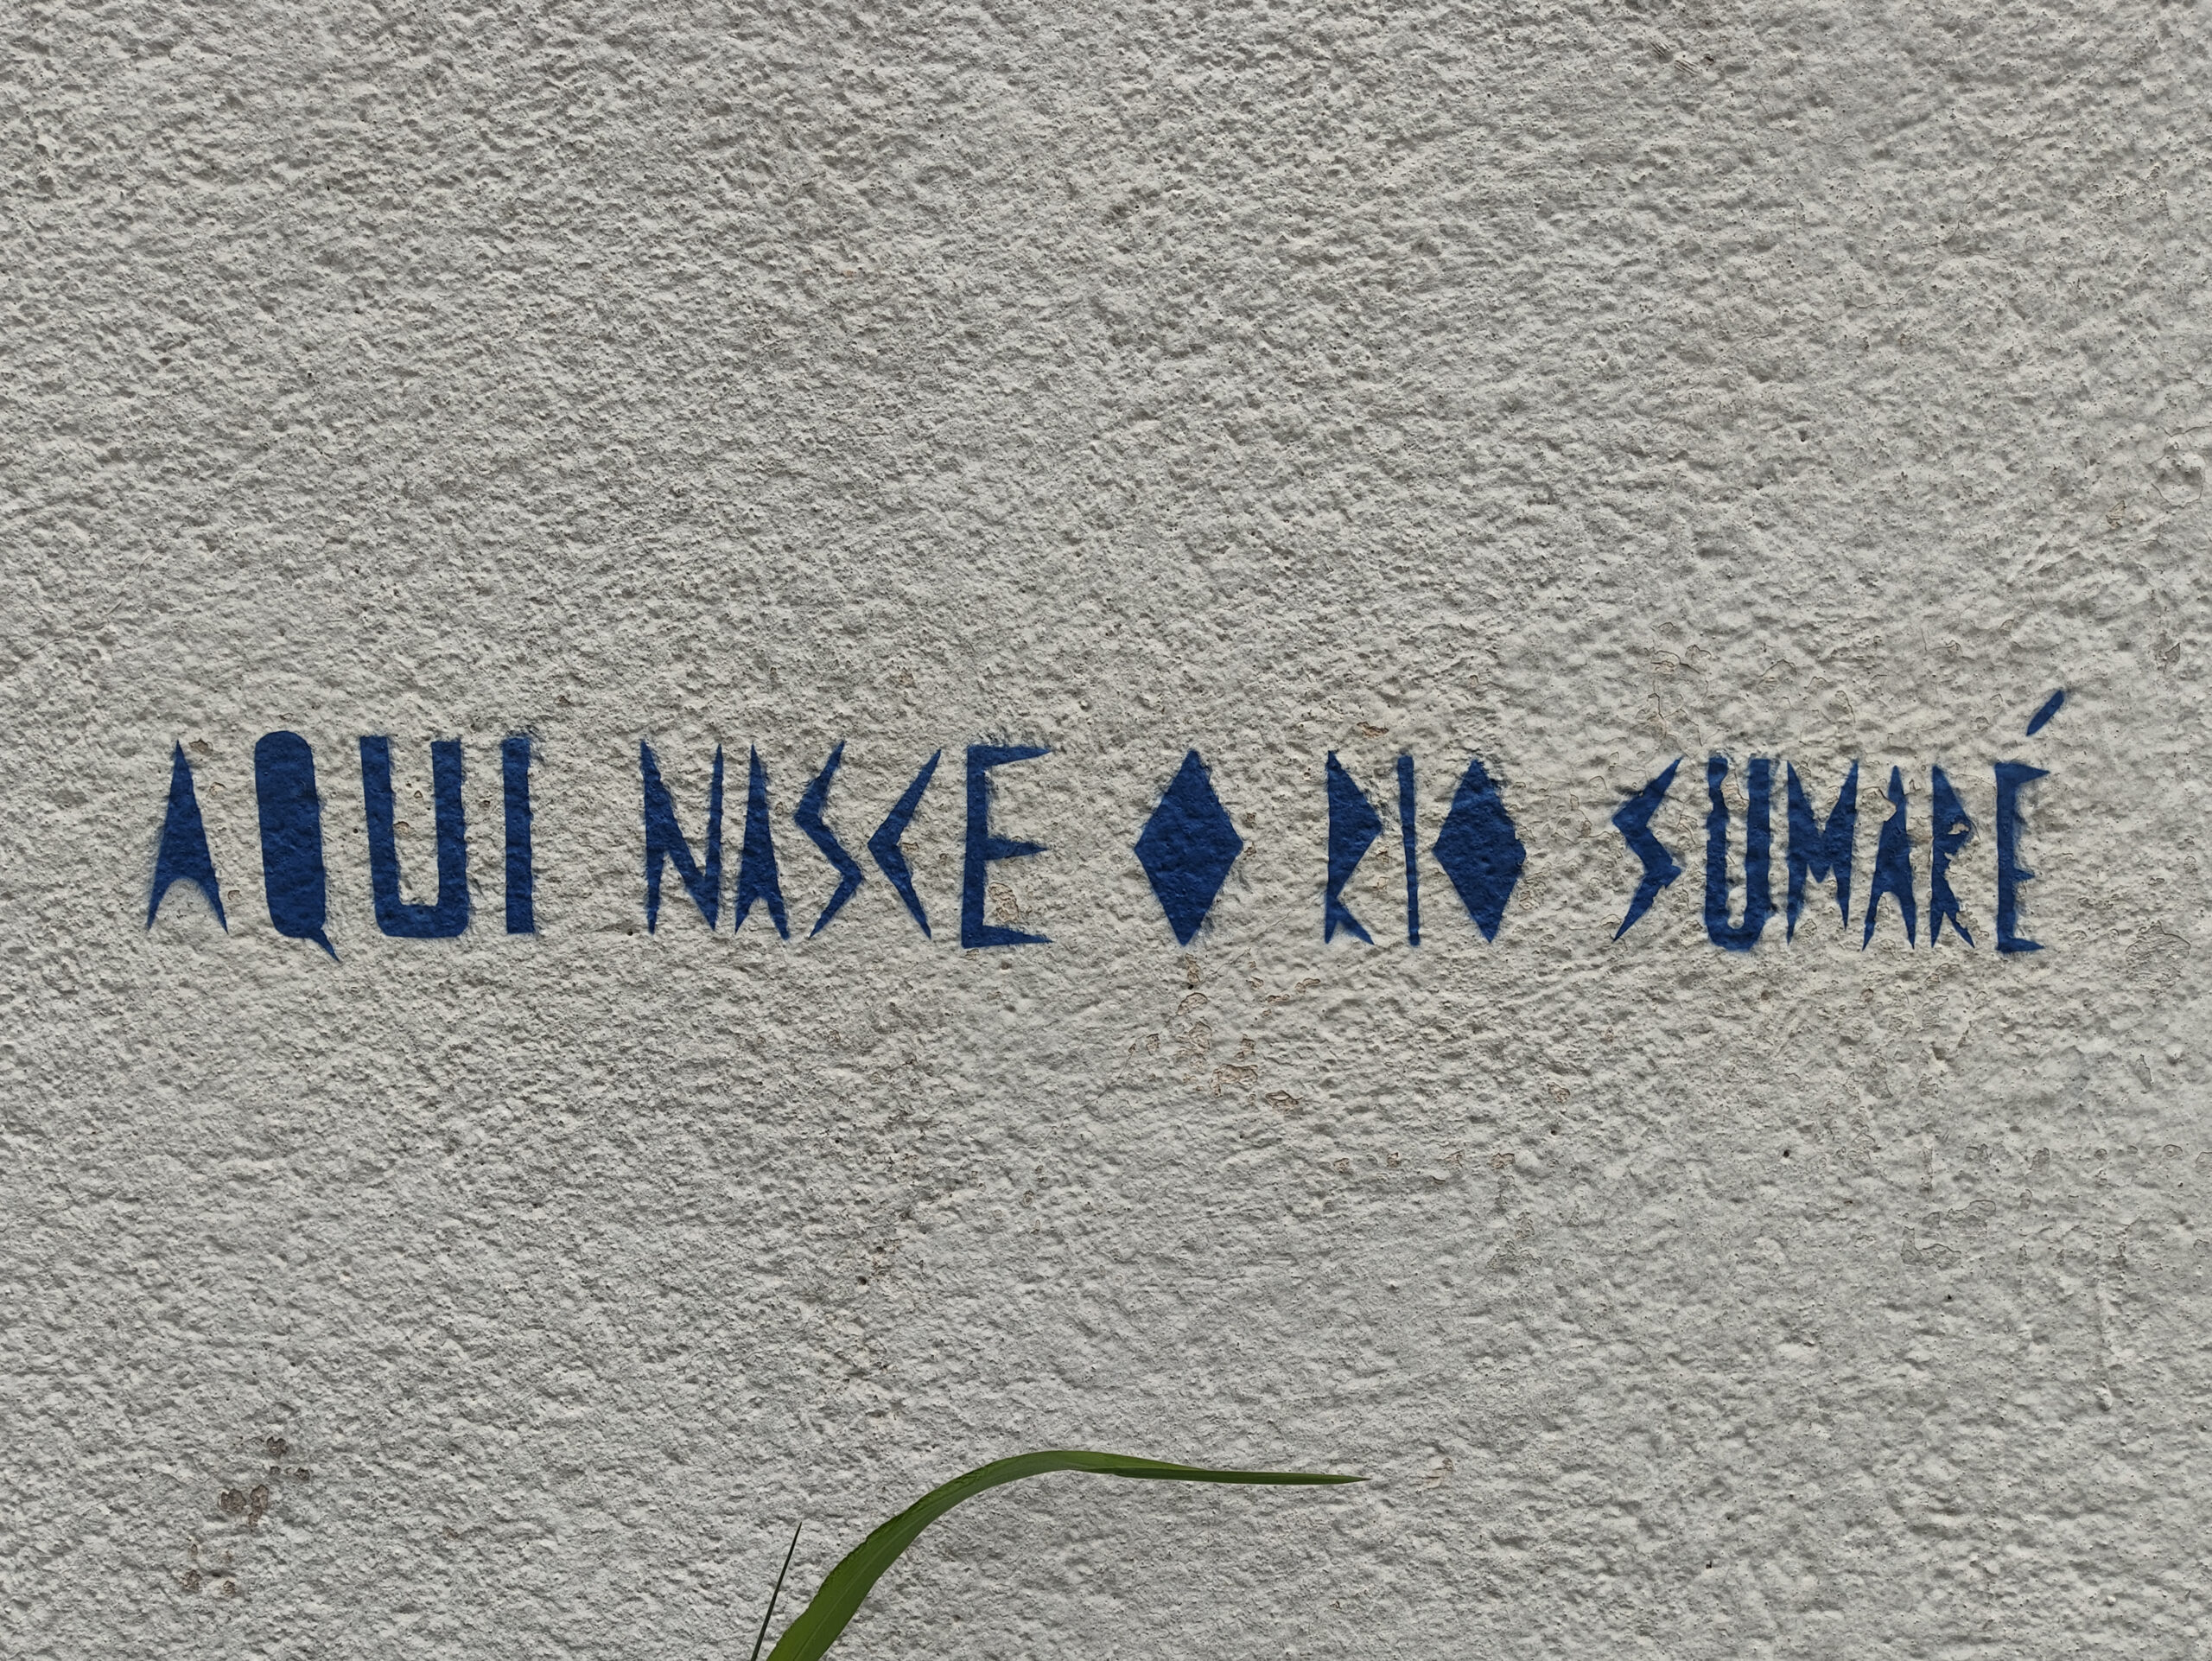 AQUI NASCE O RIO SUMARÉ